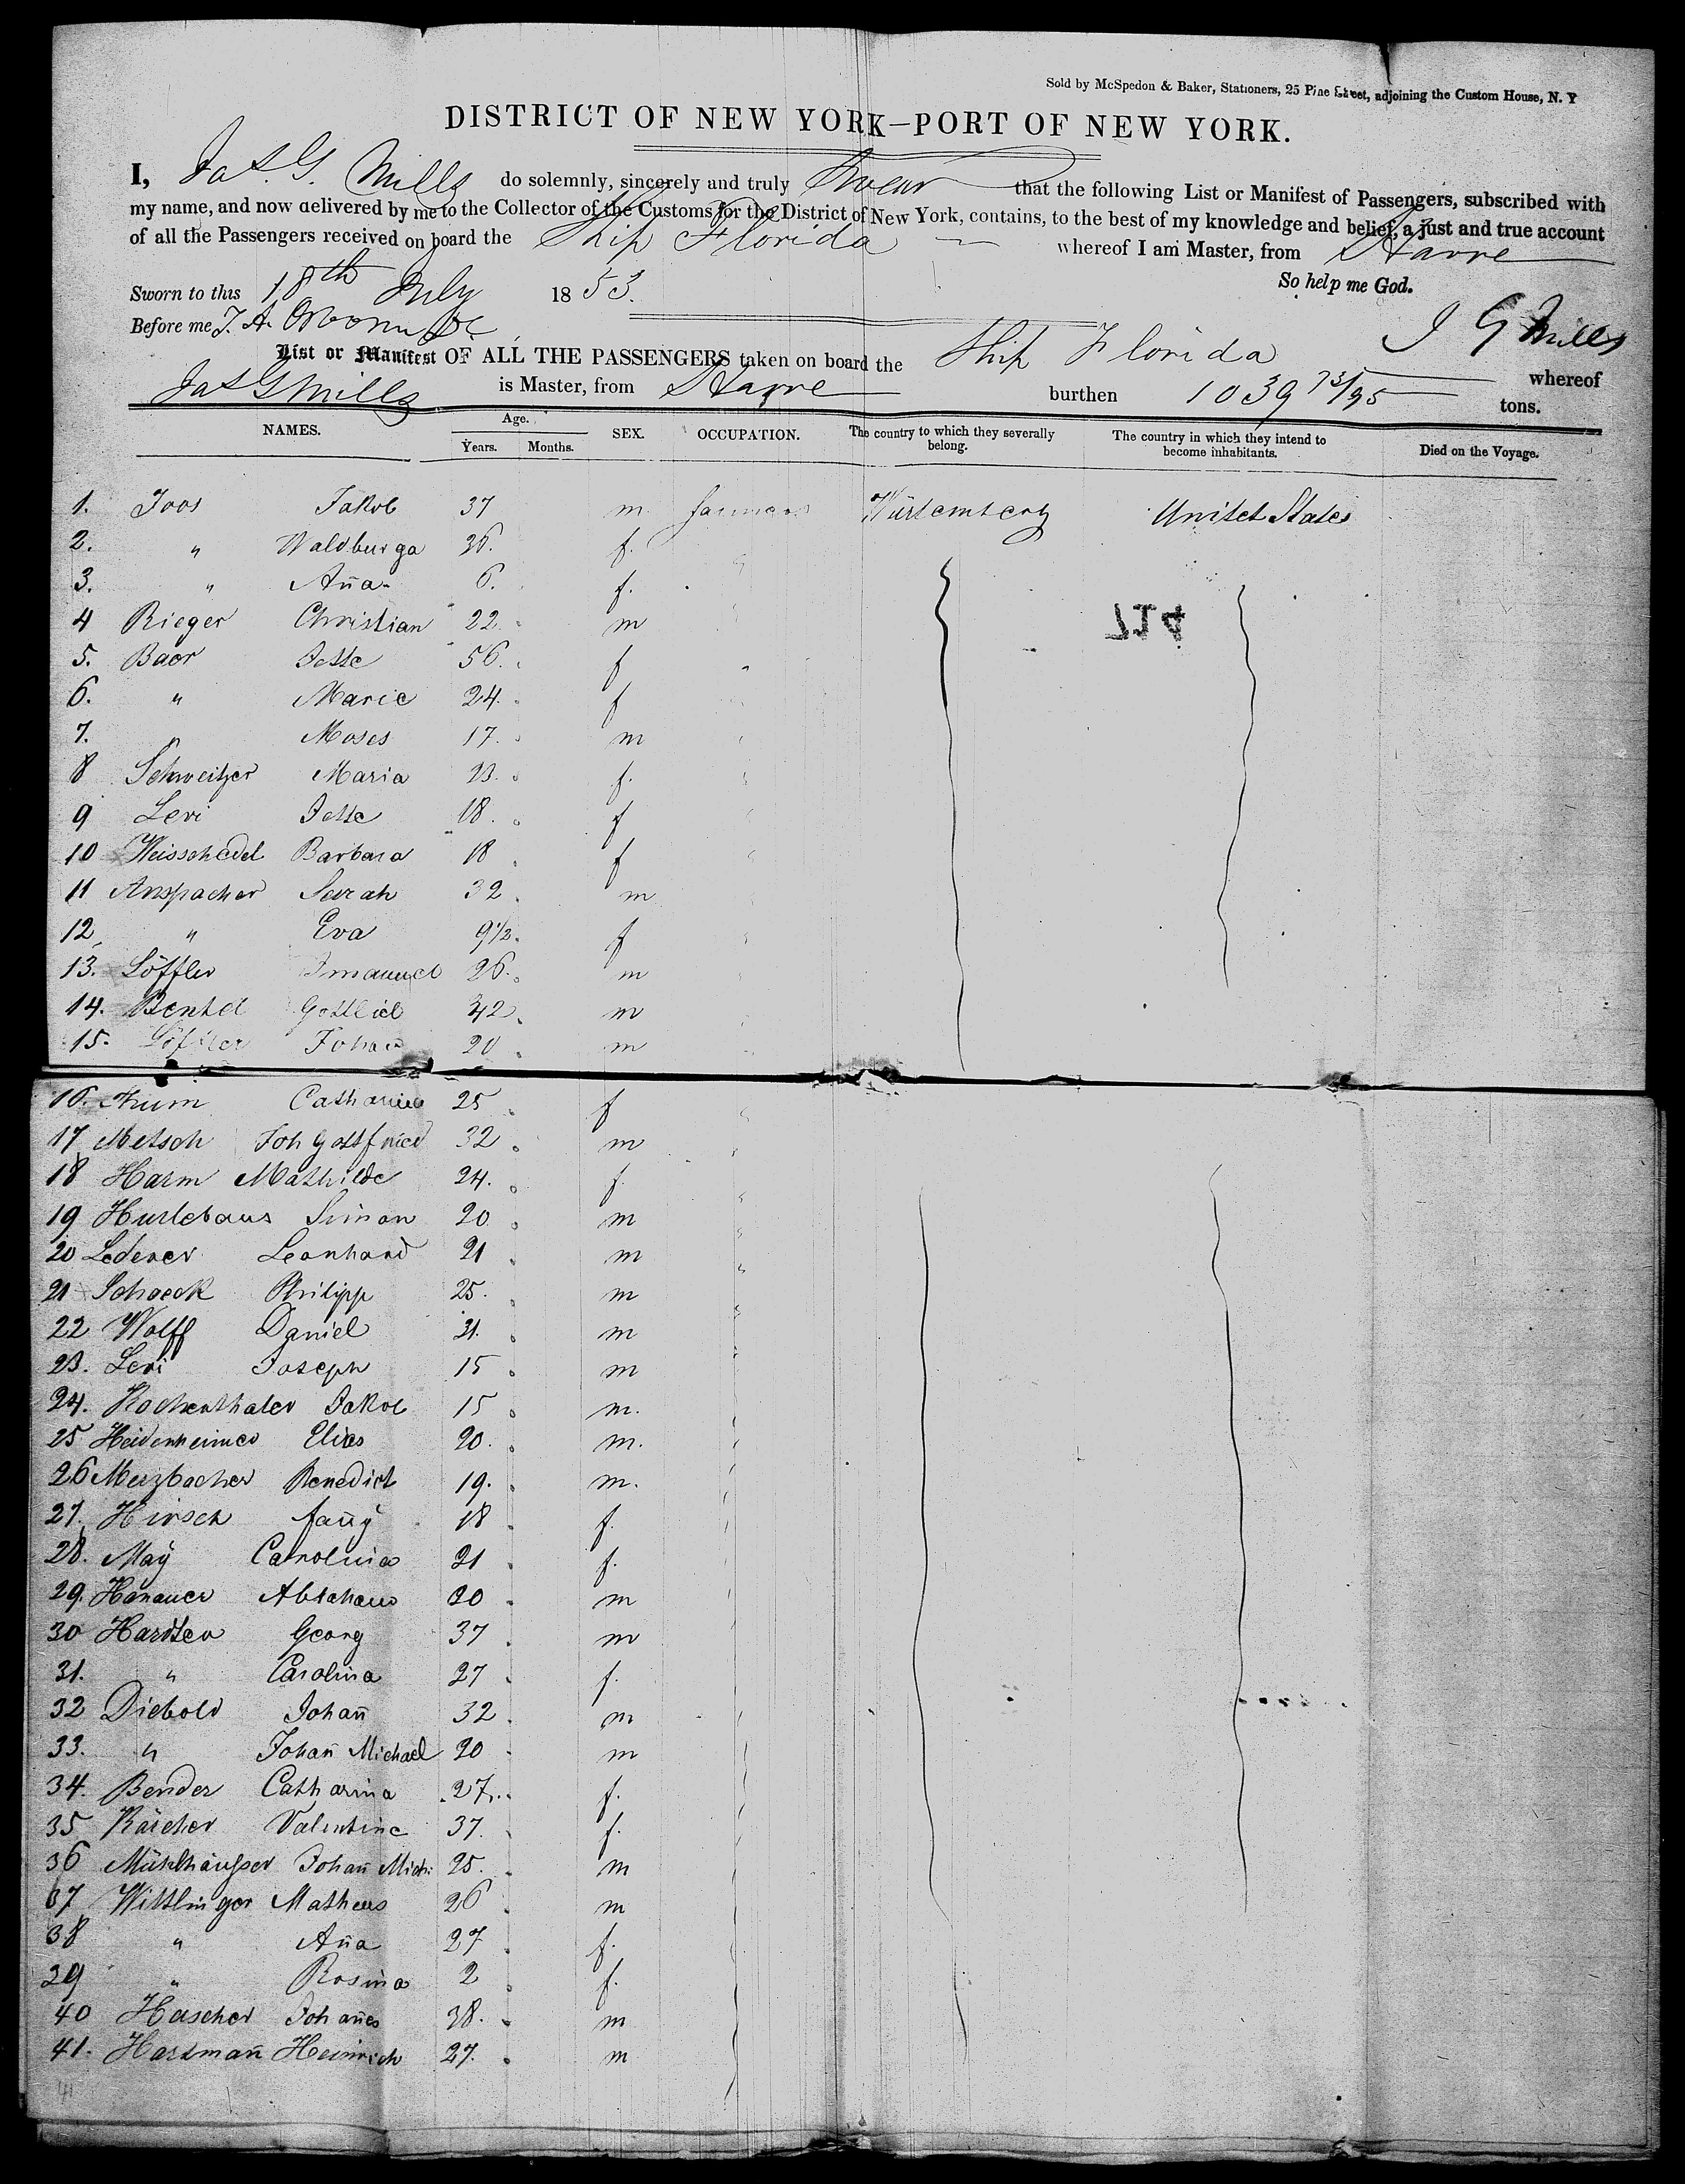 Sold by McSpedon & Baker, Stationers, 25 Pine Street, adjoining the Custom House, N. Y
DISTRICT OF NEW YORK—PORT OF NEW YORK.
I, Jas. G. Mills do solemnly, sincerely and truly Swear that the following List or Manifest of Passengers, subscribed with
my name, and now delivered by me to the Collector of the Customs for the District of New York, contains, to the best of my knowledge and belief, a just and true account
of all the Passengers received on board the Ship Florida whereof I am Master, from Havre
So help me God.
Sworn to this 18th July 1853.
Before me J. A. Osborn
J G Mills
List or Manifest OF ALL THE PASSENGERS taken on board the Ship Florida whereof
Jas G Mills is Master, from Havre burthen 1039 73/95 tons.
NAMES. Age. Years. Months. SEX. OCCUPATION. The country to which they severally belong. The country in which they intend to become inhabitants. Died on the Voyage.
1. Joos Jakob 37 m farmers Würtemberg Unitet States
2. " Waldburga 36. f.
3. " Am̄a 6. f.
714
4 Rieger Christian 22 m
5. Baer Jette 56. f
6. " Marie 24. f
7. " Moses 17. m
8 Schweitzer Maria 23. f.
9 Levi Jette 18. f
10 Weisschedel Barbara 18 f
11 Anspacher Sarah 32 m
12 " Eva 9½. f
13. Löffler Imanuel 26. m
14. Bentel Gottlieb 42 m
15. Löffler Johan 20 m
16. Catharine 25 f
17 Metsch Joh Gottfried 32 m
18 Harm Mathilde 24. f.
19 Hurlebaus Simon 20 m
20 Lederer Leonhard 21 m
21 Schoeck Philipp 25. m
22 Wolff Daniel 21. m
23. Levi Joseph 15 m
24. Rothenthaler Jakob 15 m.
25 Heidenheimer Elias 20. m.
26 Merzbacher Benedict 19. m.
27. Hirsch fañy 18 f.
28. Maÿ Carolina 21 f.
29. Hanauer Abraham 20 m
30 Georg 37 m
31. " Carolina 27 f.
32 Diebold Johañ 32 m
33. " Johañ Michael 20 m
34. Bender Catharina 27. f.
35 Valentine 37. f.
36 Mühlhäusser Johañ Mich: 25. m
37 Wittlinger Matheus 26 m
38 " Aña 27 f.
39 " Rosina 2 f.
40 Hascher Johañes 38. m
41. Hartmañ Heinrich 27. m
41